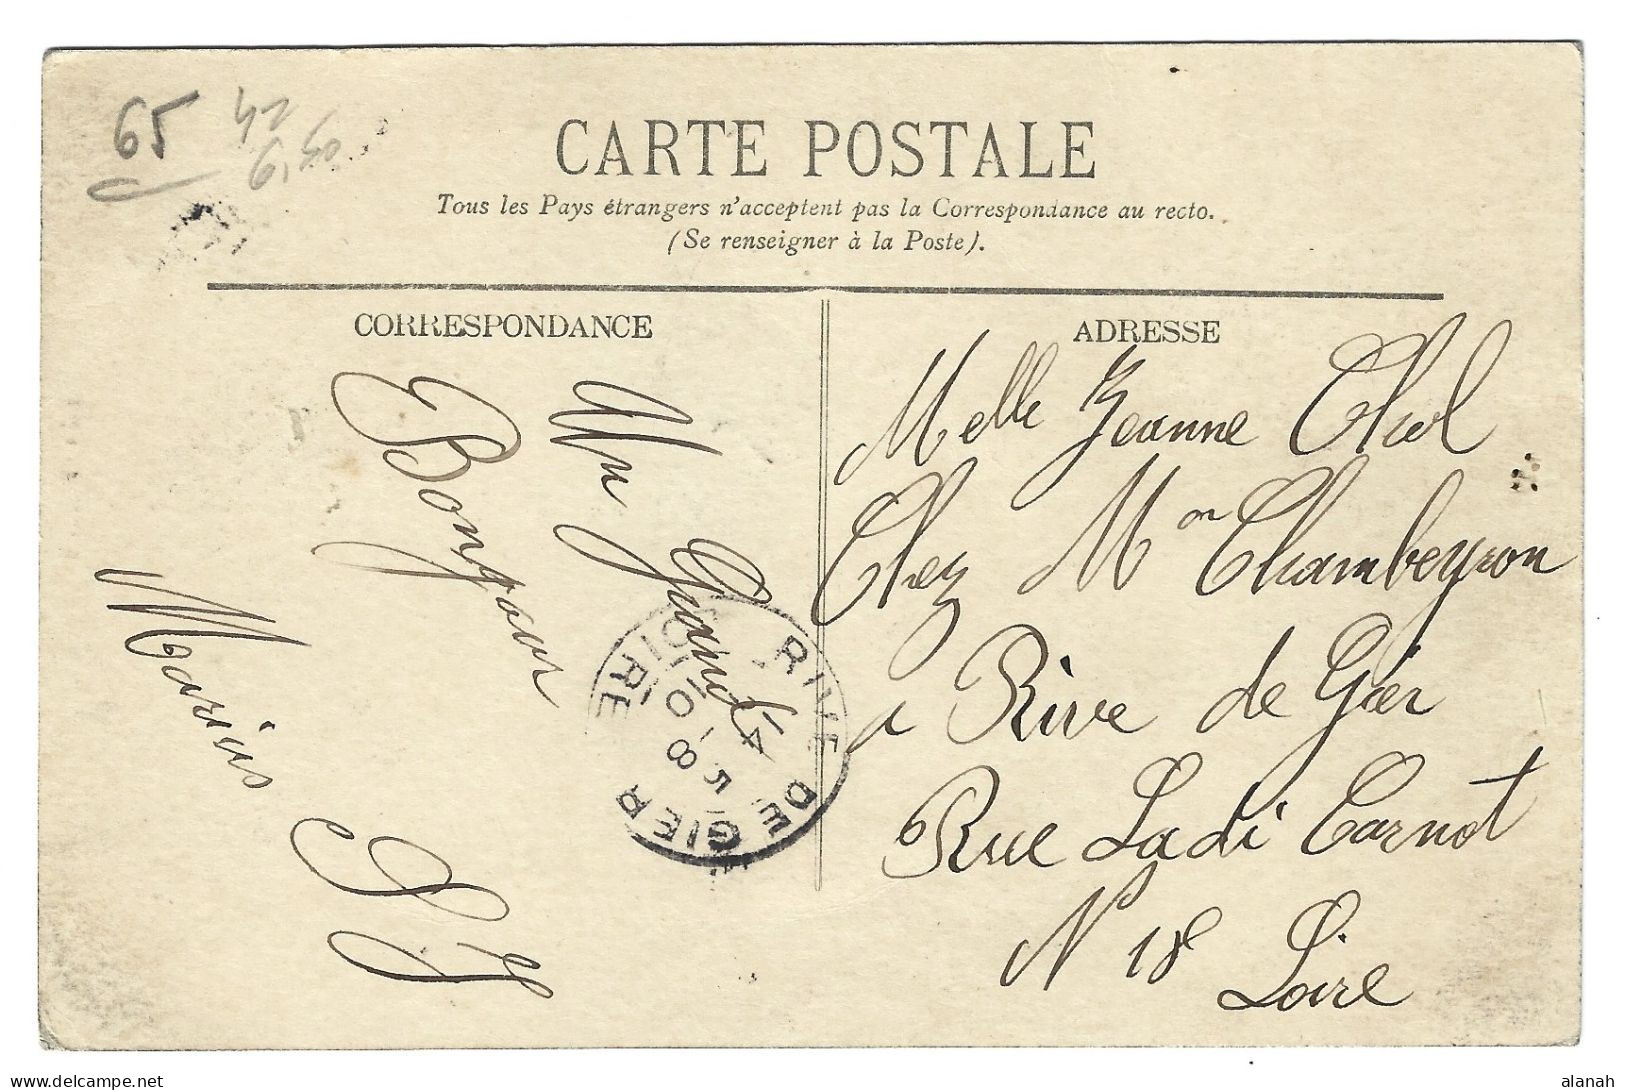 65
42
6,50
CARTE POSTALE
Tous les Pays étrangers n'acceptent pas la Correspondance au recto.
(Se renseigner à la Poste).
CORRESPONDANCE
Un Grand
Bonjour
Marius
ADRESSE
Melle Jeanne
Chez Mon Chambeyron
a Rive de Gier
Rue Sadi Carnot
N 18
Loire
RIVE DE GIER
LOIRE
14
5-8
10
www.delcampe.net
alanah